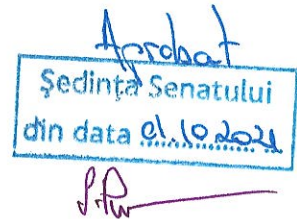 Aprobat
Şedinţa Senatului
din data 21.10.2021